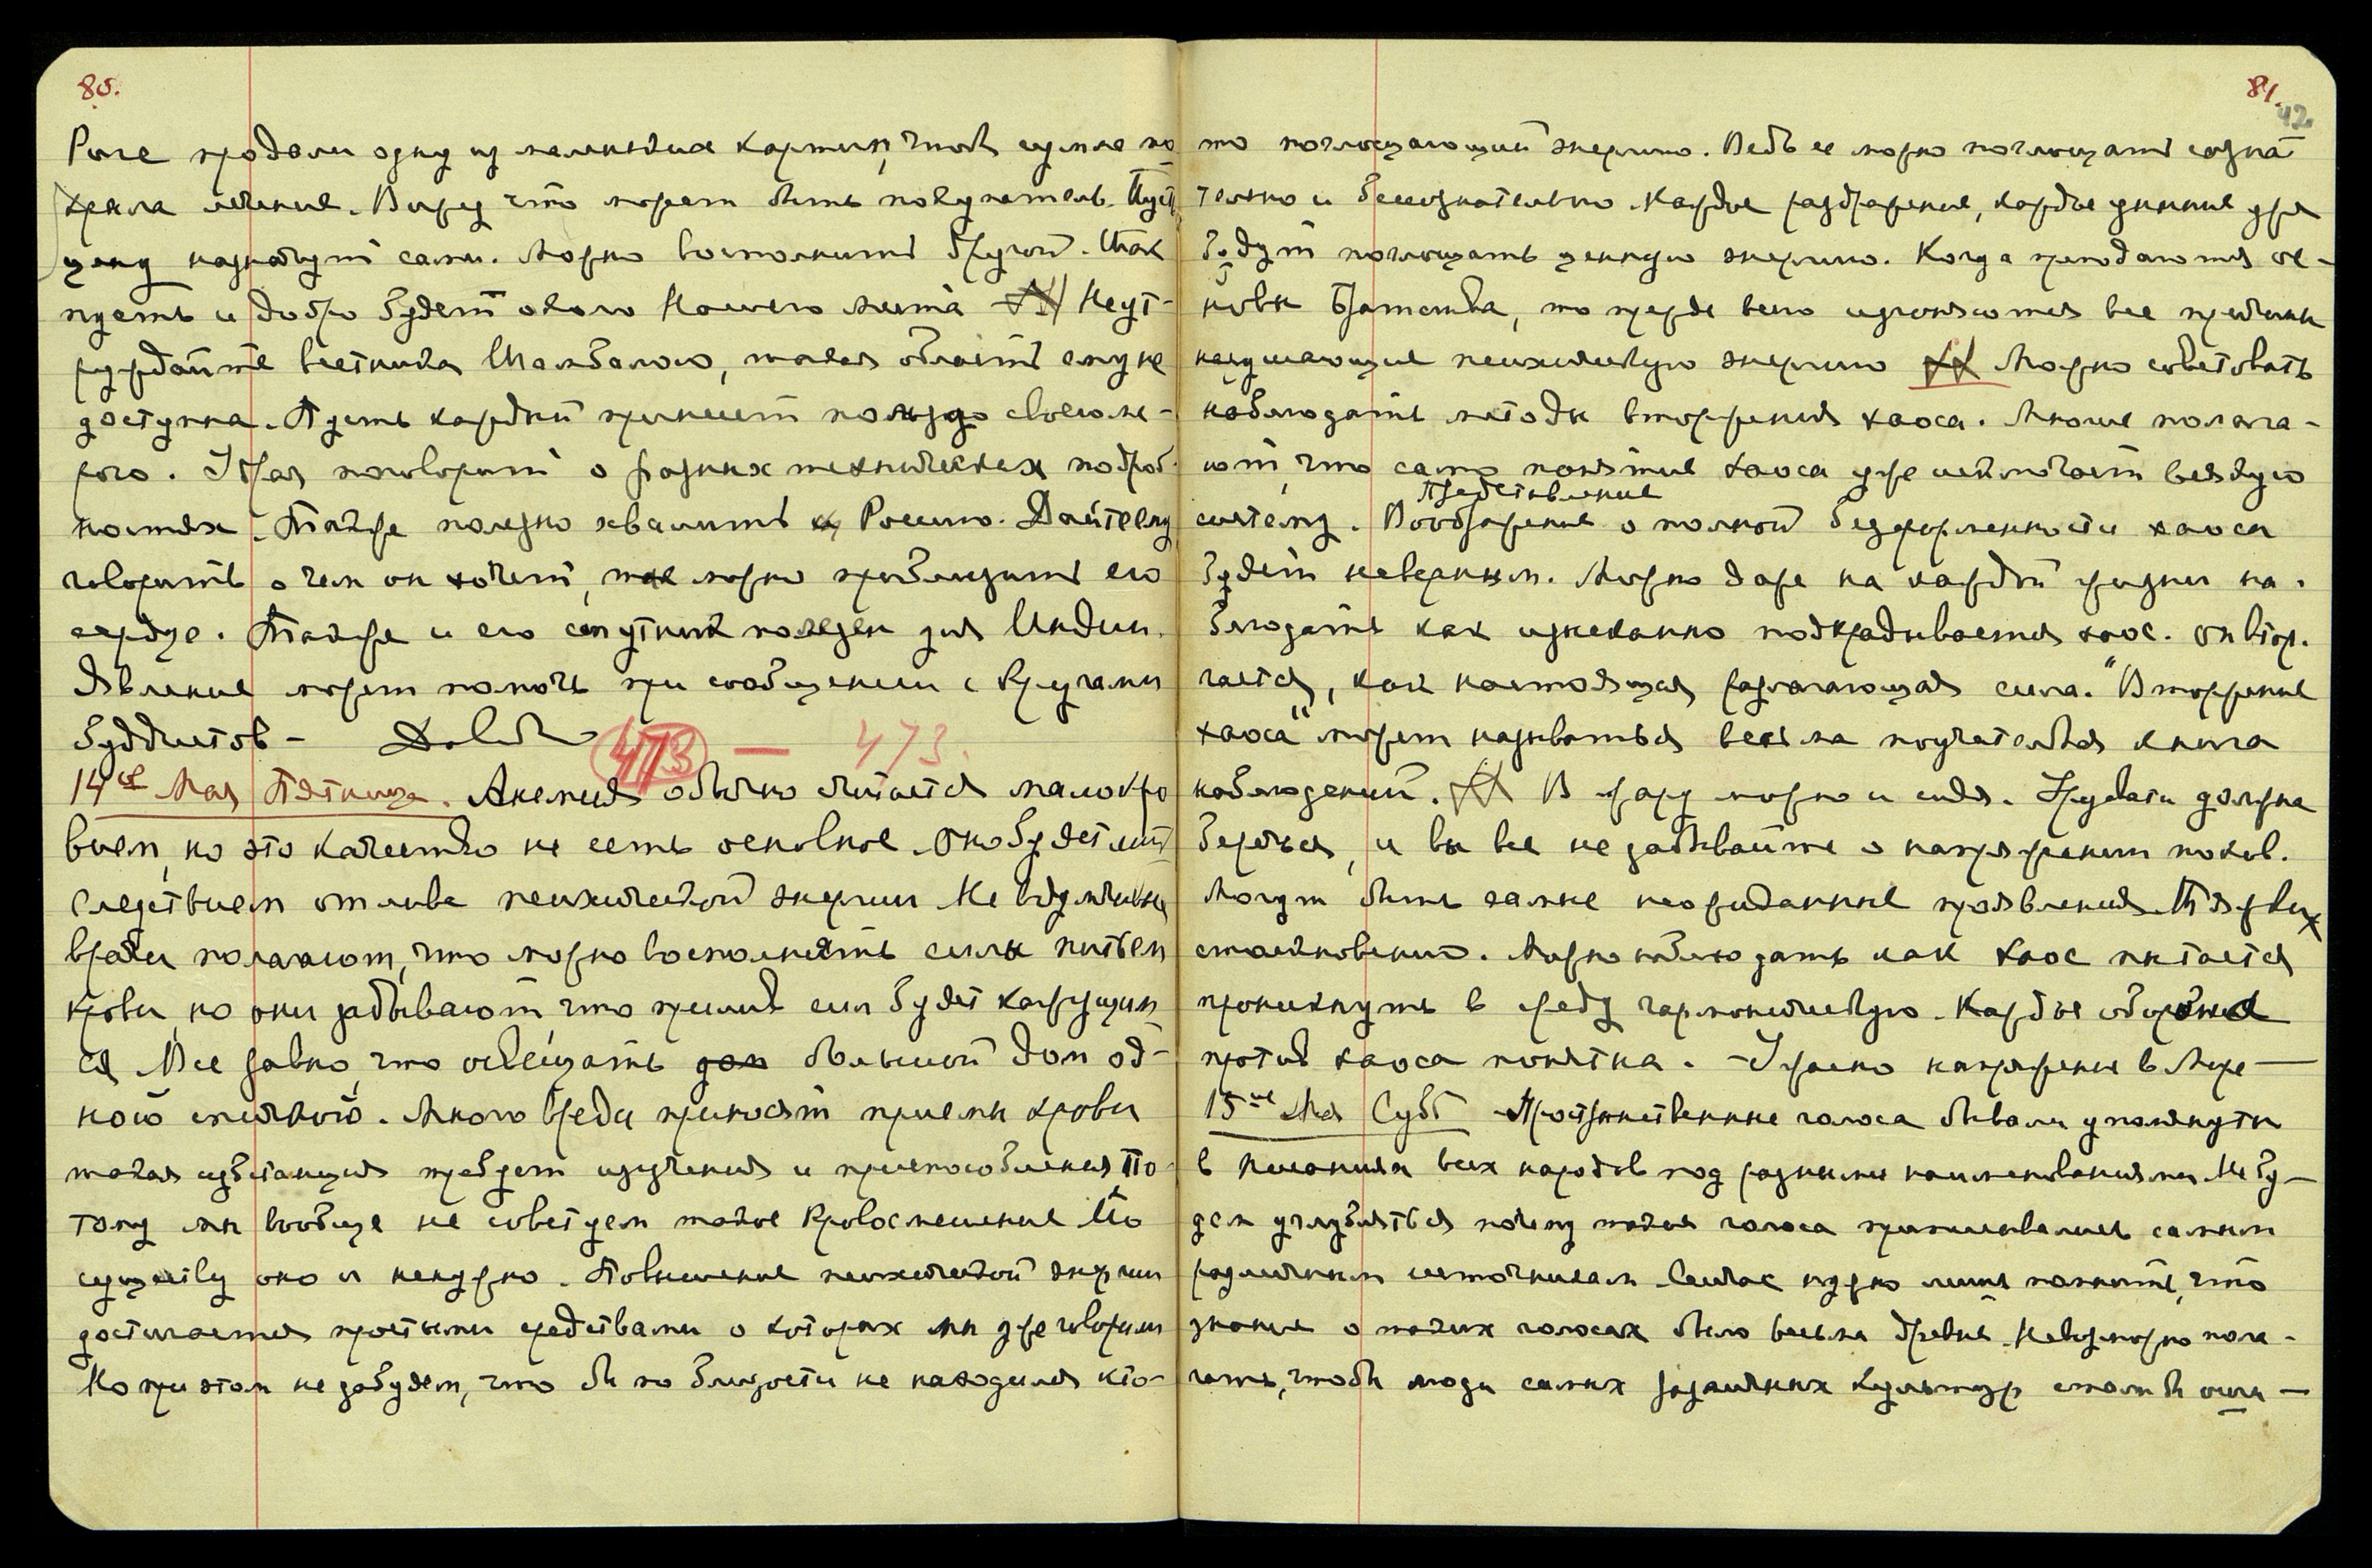 80.
Риге продали одну из маленьких картин, чтоб сумма по
крыла лечение. Вывод что может быть покупатель. Пусть
цену назначут сами. Можно восполнить другой. Так
пусть и добро будет около Нашего места Неут-
руждайте вестника Шамбалою, такая область ему не
доступна. Пусть каждый принесет пользу своею ме-
рою. Удрая поговорит о разных технических подроб-
ностях. Также полезно хвалить Россию. Дайте ему
говорить о чем он хочет, так можно приблизить его
сердце. Также и его спутник полезен для Индии.
Явление может помочь при сообщении с кругами
буддистов - Довольно 473 — 473.
14ое Мая Пятница. Анемия обычно считается малокро
вием, но это качество не есть основное. Оно будет лишь
следствием отлива психической энергии Не вдумчивые
врачи полагают, что можно восполнять силы питьем
крови, но они забывают, что прилив сил будет кажущим
ся Все равно, что освещать дом большой дом од-
ною спичкою. Много вреда приносят приемы крови
такая субстанция требует изучения и приспособления По-
тому мы вообще не советуем такое кровосмешение По
существу оно и ненужно. Повышение психической энергии
достигается простыми средствами о которых мы уже говорили
Но при этом не забудем, что бы по близости не находился кто-
81.
42
то поглощающий энергию. Ведь ее можно поглощать созна
тельно и бессознательно Каждое раздражение, каждое уныние уже
будут поглощать ценную энергию. Когда преподаются ос-
новы Братства, то прежде всего изгоняются все причины
нарушающие психическую энергию Можно советовать
наблюдать методы вторжения хаоса. Многие полага-
ют, что само понятие хаоса уже исключает всякую
Представление
систему. Воображение о полной безформенности хаоса
будет неверным. Можно даже на каждой жизни на-
блюдать как изысканно подкрадывается хаос. Он втор-
гается, как настоящая разлагающая сила. "Вторжение
хаоса" может называться весьма поучительная книга
наблюдений. В жару можно и сидя. Урувати должна
беречься, и вы все не забывайте о напряжении токов.
Могут быть самые неожиданные проявления тяжких
столкновений. Можно наблюдать как хаос пытается
проникнуть в среду гармоническую. Каждая оборона
против хаоса понятна. - Ужасно напряжение в Мире —
15ое Мая Субб Пространственные голоса бывали упомянуты
в писаниях всех народов под разными наименованиями Не бу-
дем углубляться почему такие голоса приписывались самым
различным источникам Сейчас нужно лишь помнить, что
знание о таких голосах было весьма древне. Невозможно пола-
гать, чтобы люди самых различных культур столь бы оши —